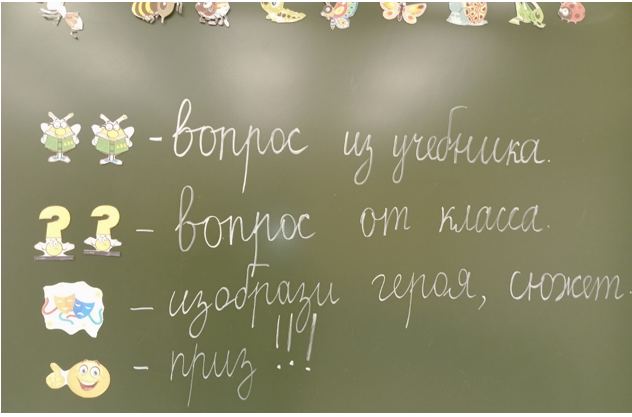 - вопрос из учебника.
- вопрос от класса.
- изобрази героя, сюжет.
- приз!!!